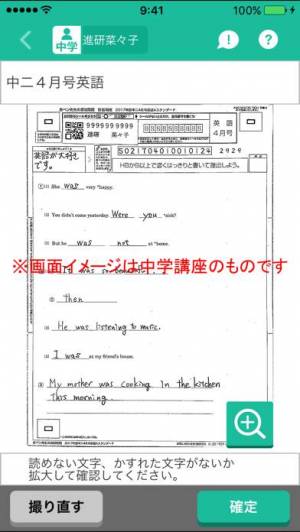 9:41
100%
中学
進研菜々子
中二4月号英語
999999999
進研 菜々子
英語
4月号
5021704010010124 2929
英語が大好き
です。
HBから上で濃くはっきりと書いて提出しよう。
She was very happy.
You didn't come yesterday. Were you sick?
But he was not at home.
※画面イメージは中学講座のものです
then
He was listening to music.
I was at my friend's house.
My mother was cooking in the kitchen
this morning.
読めない文字、かすれた文字がないか
拡大して確認してください。
撮り直す
確定